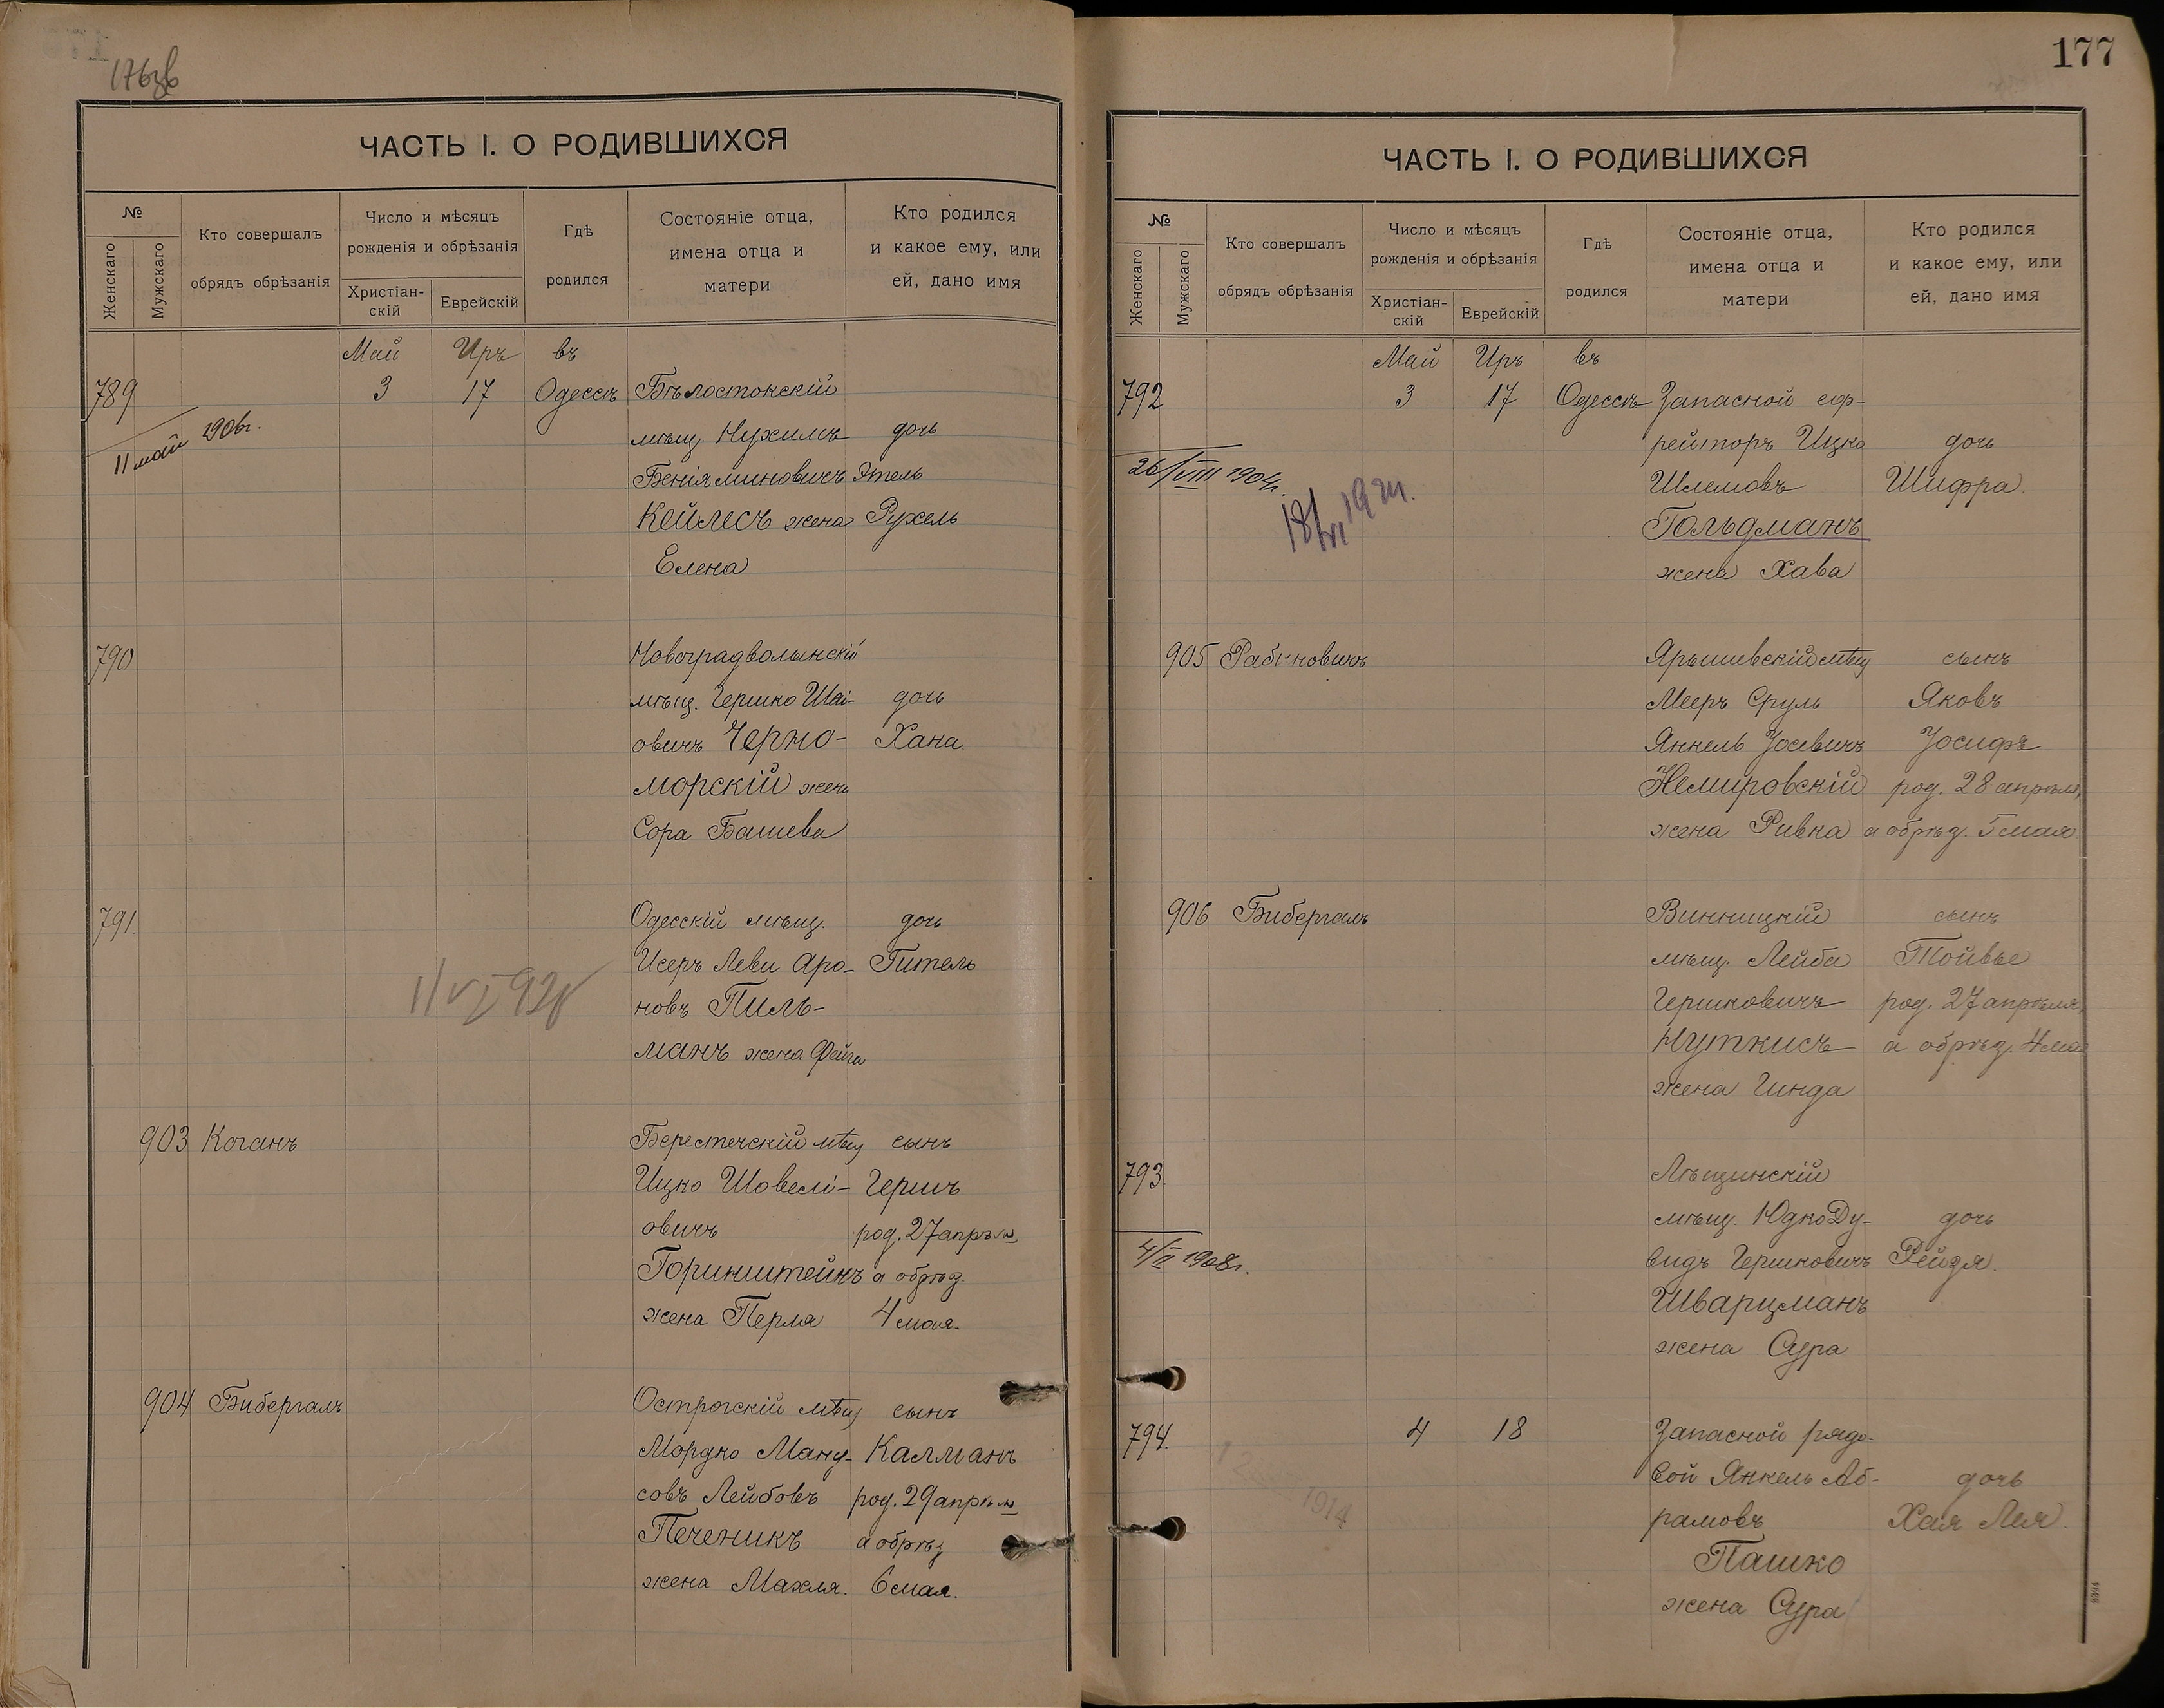 176об
ЧАСТЬ I. О РОДИВШИХСЯ
№
Женскаго
Мужскаго
Кто совершалъ
обрядъ обрѣзанія
Число и мѣсяцъ
рожденія и обрѣзанія
Христіан-
скій
Еврейскій
Гдѣ
родился
Состояніе отца,
имена отца и
матери
Кто родился
и какое ему, или
ей, дано имя
Май Иръ въ
789 3 17 Одессѣ Бѣлостокскій
11 май 1906г.
мѣщ. Нухимъ дочь
Беніяминовичъ Этель
Кейлесъ жена Рухель
Елена
790 Новоградволынскій
мѣщ. Гершко Шаі- дочь
овичъ Черно- Хана
морскій жена
Сора Башева
791 Одесскій мѣщ. дочь
Исеръ Леви Аро- Гитель
новъ Пиль-
манъ жена Фейга
903 Коганъ Берестечскій мѣщ сынъ
Ицко Шовелі- Гершъ
овичъ род. 27 апрѣля
Горинштейнъ а обрѣз.
жена Перля 4 мая.
904 Бибергалъ Острогскій мѣщ сынъ
Мордко Ману- Калманъ
совъ Лейбовъ род. 29 апрѣля
Печеникъ а обрѣз
жена Махля. 6 мая.
177
ЧАСТЬ I. О РОДИВШИХСЯ
№
Женскаго
Мужскаго
Кто совершалъ
обрядъ обрѣзанія
Число и мѣсяцъ
рожденія и обрѣзанія
Христіан-
скій
Еврейскій
Гдѣ
родился
Состояніе отца,
имена отца и
матери
Кто родился
и какое ему, или
ей, дано имя
Май Иръ въ
792 3 17 Одессѣ Запасной еф-
рейторъ Ицко дочь
26/VIII 1904г.
Шлемовъ Шифра.
Гольдманъ
жена Хава
905 Рабиновичъ Ярышевскій мѣщ сынъ
Мееръ Сруль Яковъ
Янкель Іосевичъ Іосифъ
Немировскій род. 28 апрѣля,
жена Ривка а обрѣз. 5 мая
906 Бибергалъ Винницкій сынъ
мѣщ. Лейба Тойвье
Гершковичъ род. 27 апрѣля,
Нуткисъ а обрѣз. 4 мая
жена Гинда
793. Лѣщинскій
мѣщ. Юдко Ду- дочь
4/II 1908г.
видъ Гершковичъ Рейзя.
Шварцманъ
жена Сура
794. 4 18 Запасной рядо-
вой Янкель Аб- дочь
рамовъ Хая Лея.
1914
Пашко
жена Сура